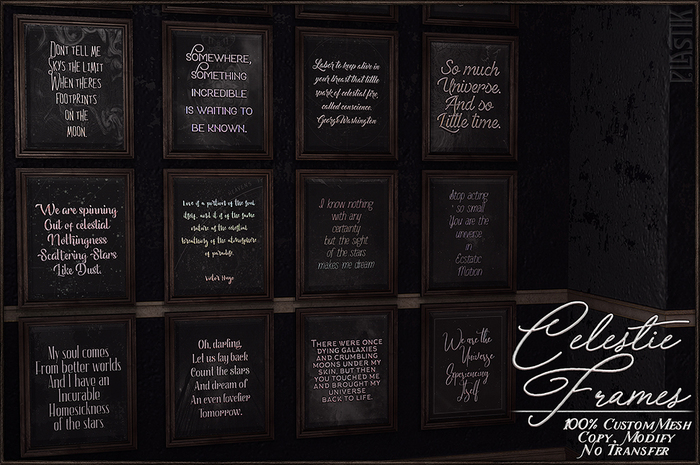 Dont tell me
Skys the limit
When theres
footprints
on the
moon.
Somewhere,
something
incredible
is waiting to
be known.
Labor to keep alive in
your breast that little
spark of celestial fire,
called conscience.
George Washington
So much
Universe.
And so
Little time.
We are spinning
Out of celestial
Nothingness
-Scattering Stars
Like Dust.
Love is a portion of the soul
itself, and it is of the same
nature as the celestial
breathing of the atmosphere
of paradise.
Victor Hugo
I know nothing
with any
certainty
but the sight
of the stars
makes me dream
Stop acting
so small
You are the
universe
in
Ecstatic
Motion
My soul comes
From better worlds
And I have an
Incurable
Homesickness
of the stars
Oh, darling,
Let us lay back
Count the stars
And dream of
An even lovelier
Tomorrow.
There were once
dying galaxies
and crumbling
moons under my
skin, but then
you touched me
and brought my
universe
back to life.
We are the
Universe
Experiencing
Itself
PLASTIK
Celestie
Frames
100% Custom Mesh
Copy, Modify
No Transfer